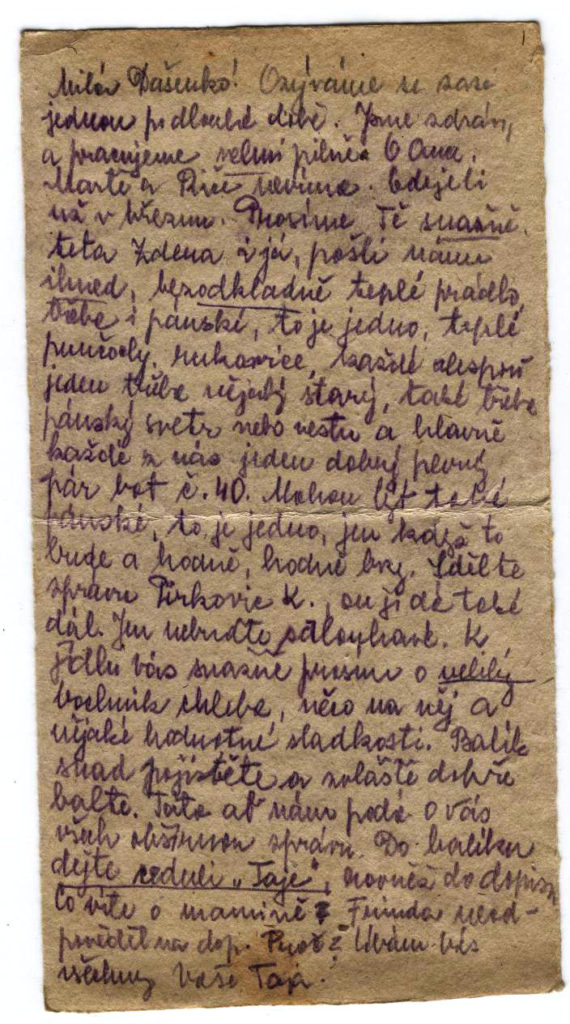 Milá Dášenko! Ozýváme se zase
jednou po dlouhé době. Jsme zdrávy,
a pracujeme velmi pilně. O Ance,
Martě a nevíme. Odejeli
už v březnu. Prosíme Tě snažně,
teta Zdena i já, pošli nám
ihned, bezodkladně teplé prádlo,
třeba i pánské, to je jedno, teplé
punčochy, rukavice, každé alespoň
jeden třeba nějaký starý, také třeba
pánský svetr nebo vestu a hlavně
každé z nás jeden dobrý pevný
pár bot č. 40. Mohou být také
pánské, to je jedno, jen když to
bude a hodně, hodně brzy. Sdělte
zprávu Pirkovie K., on ji dá také
dál. Jen nebuďte zdlouhavé. K
jídlu vás snažně prosím o veliký
bochník chleba, něco na něj a
nějaké hodnotné sladkosti. Balík
snad pojistěte a zvláště dobře
balte. Táta ať nám podá o vás
všech obšírnou zprávu. Do balíku
dejte ceduli „Taje“, rovněž do dopisu
Co víte o mamině? Frinda neod-
pověděl na dop. Proč? Líbám vás
všechny Vaše Taja.